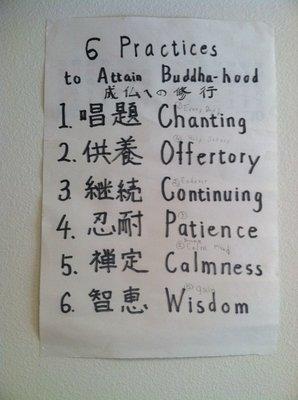 6 Practices
to Attain Buddha-hood
成仏への修行
1. 唱題 Chanting
2. 供養 Offertory
3. 継続 Continuing
4. 忍耐 Patience
5. 禅定 Calmness
6. 智恵 Wisdom